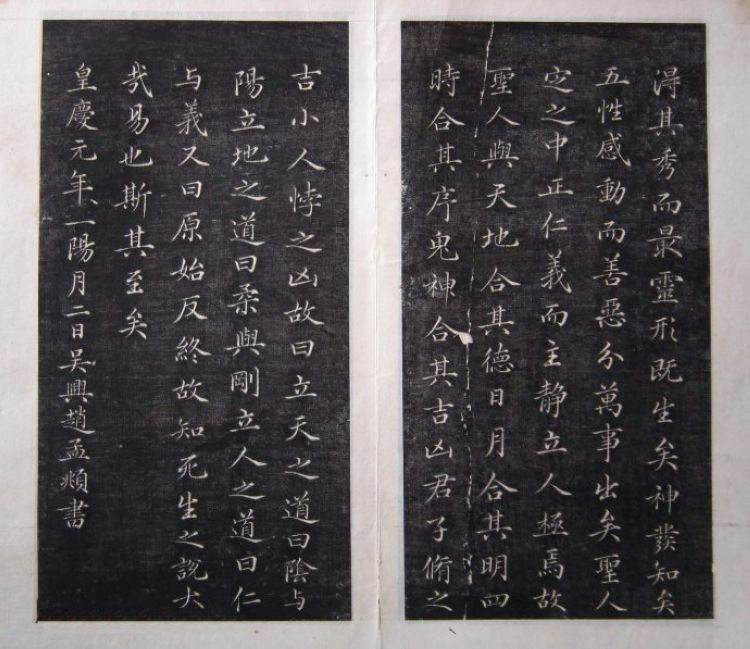 淂其秀而最靈形既生矣神發知矣
五性感動而善惡分萬事出矣聖人
定之中正仁義而主静立人極焉故
聖人與天地合其德日月合其明四
時合其序鬼神合其吉凶君子脩之
吉小人悖之凶故曰立天之道曰陰与
陽立地之道曰柔與剛立人之道曰仁
与義又曰原始反終故知死生之說大
哉易也斯其至矣
皇慶元年一陽月二日吳興趙孟頫書